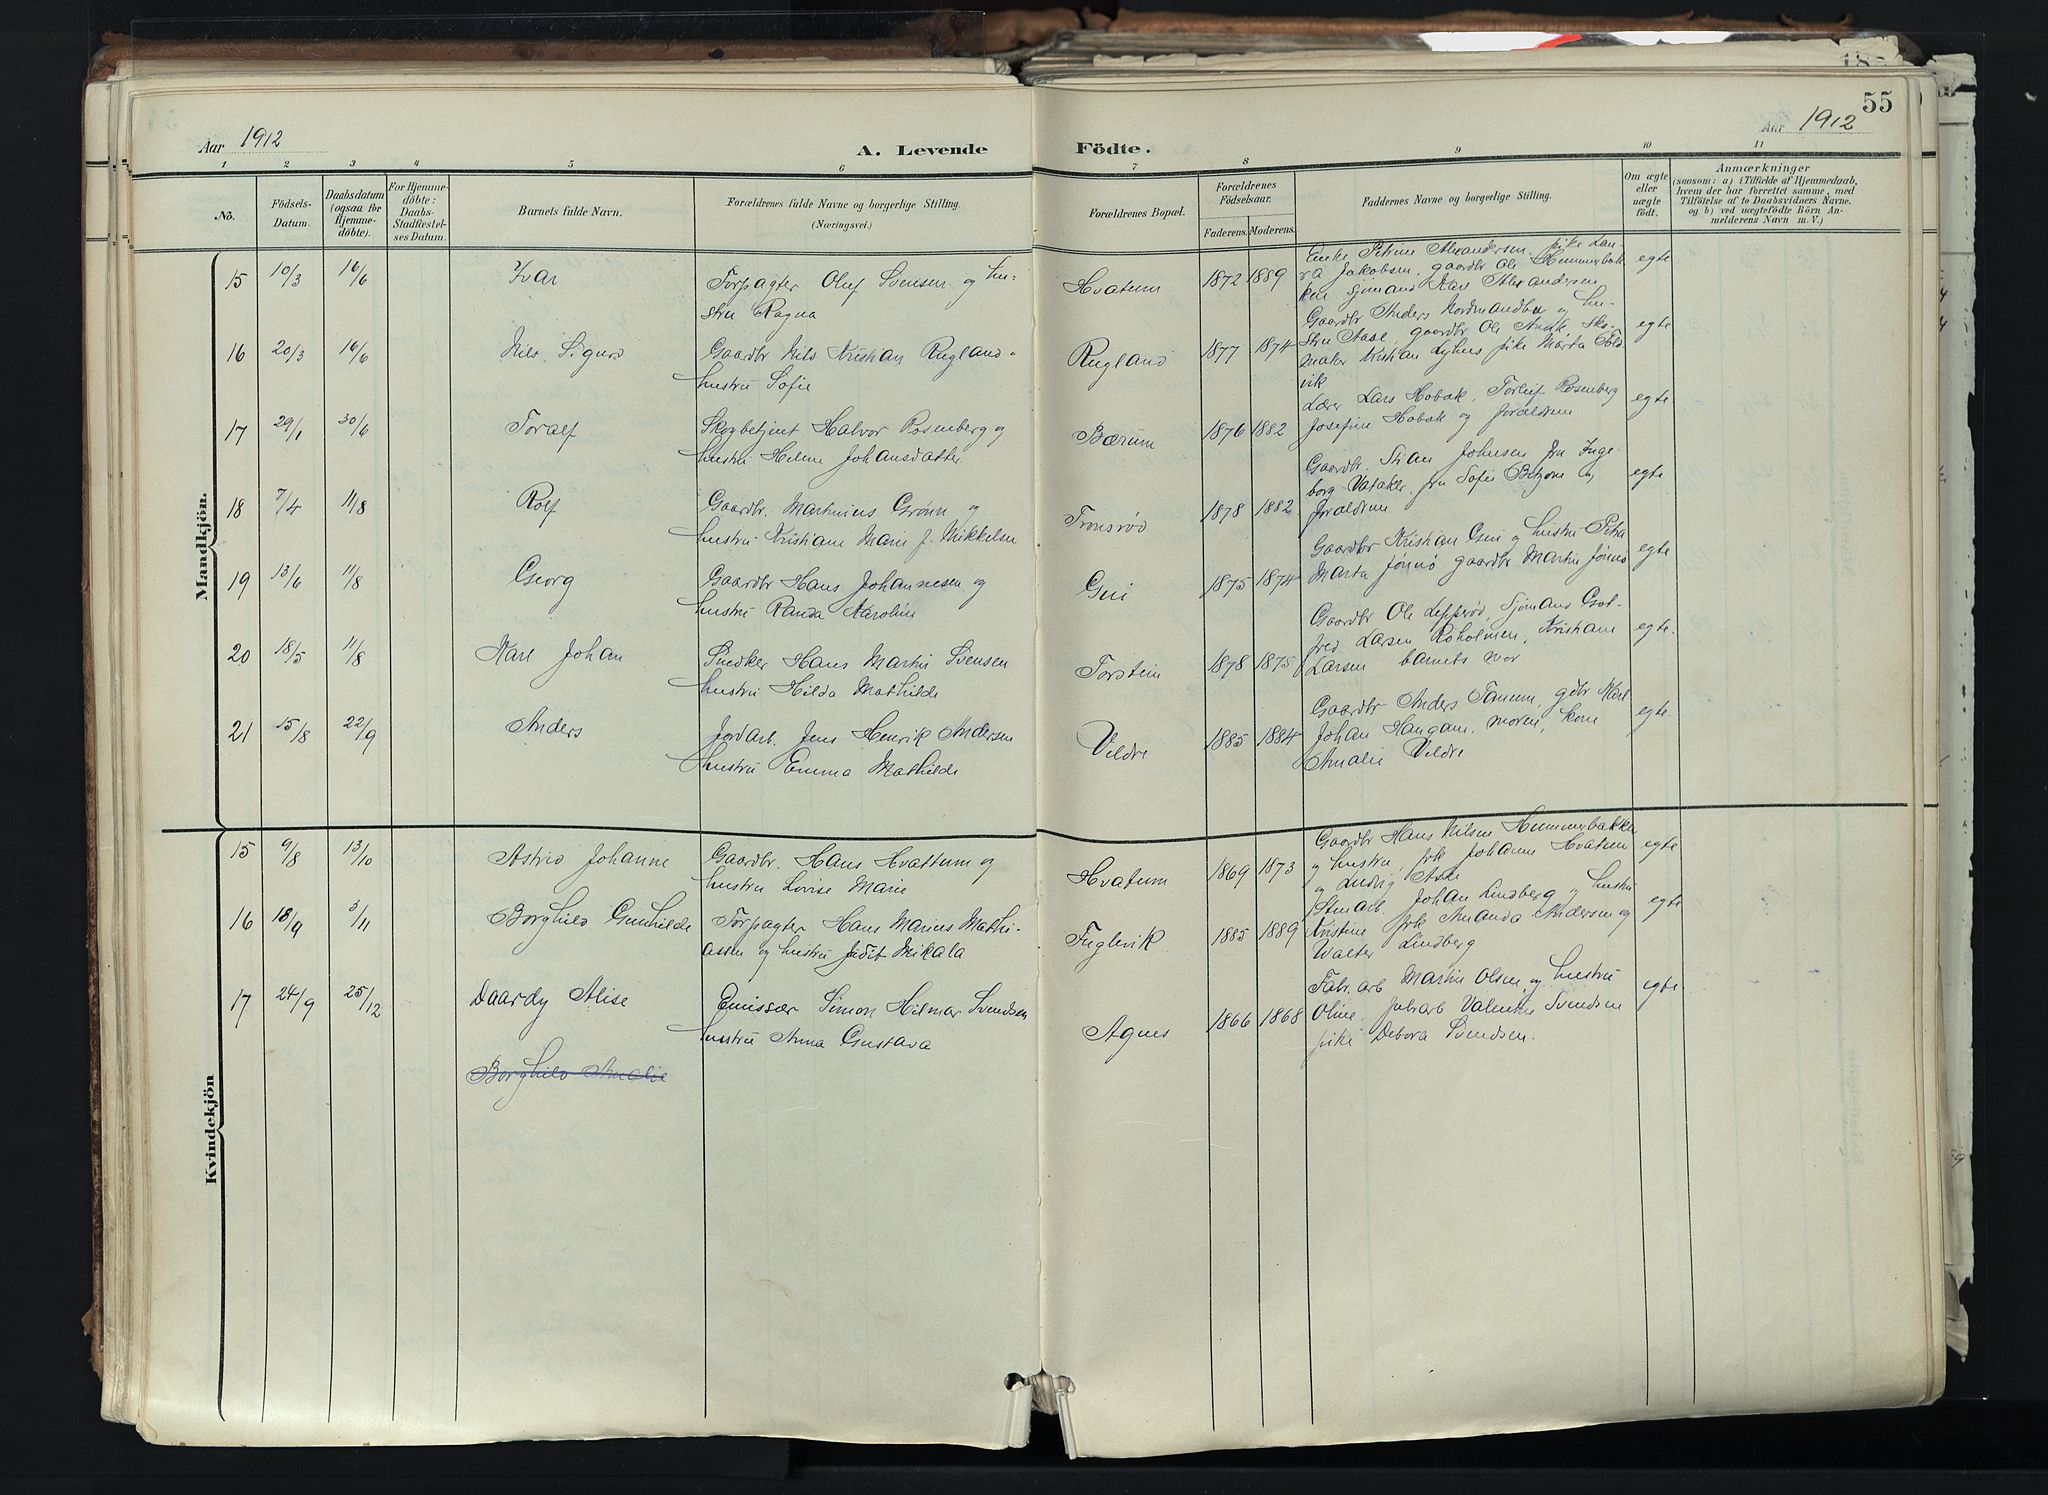 55
Aar 1912
A. Levende
Födte.
Aar 1912
1 2 3 4 5 6 7 8 9 10 11
No.
Födsels-
Datum.
Daabsdatum
(ogsaa for
Hjemme-
döbte).
For Hjemme-
döbte:
Daabs-
Stadfæstel-
ses Datum.
Barnets fulde Navn.
Forældrenes fulde Navne og borgerlige Stilling.
(Næringsvei.)
Forældrenes Bopæl.
Forældrenes
Födselsaar.
Faderens. Moderens.
Faddernes Navne og borgerlige Stilling.
Om ægte
eller
uægte
født.
Anmærkninger
(saasom: a) i Tilfælde af Hjemmedaab,
hvem der har forrettet samme, med
Tilføielse af to Daabsvidners Navne.
og b) ved uægtefødte Börn An-
melderens Navn m. V.)
Mandkjön.
15 10/3 16/6 Ivar Forpagter Oluf Svensen og hu-
stru Ragna
Hvatum 1872 1889 Enke Petrine Alexandersen, pike Lau-
ra Jakobsen, gaardbr Ole Hummerbak-
ken sjømand Karl Alexandersen
egte
16 20/3 16/6 Nils Sigurd Gaardbr Nils Kristian Rugland
hustru Sofie
Rugland 1877 1874 Gaardbr Anders Nordmandbu og hu-
stru Aase, gaardbr Ole Aasak, sko-
maker Kristian Lyhus pike Marta Fold
vik
egte
17 29/1 30/6 Toralf Skogbetjent Halvor Rosenberg og
hustru Helene Johansdatter.
Bærum 1876 1882 Lærer Lars Hobæk, Torleif Rosenberg
Josefine Hobæk og forældrene
egte
18 7/4 11/8 Rolf Gaardbr. Martinius Grønn og
hustru Kristiane Marie f. Mikkelsen
Tronsrød 1878 1882 Gaardbr. Stian Johnsen fru Inge-
borg Vataker, fru Sofie og
forældrene
egte
19 13/6 11/8 Georg Gaardbr Hans Johannesen og
hustru Randa Karoline
Gui 1875 1874 Gaardbr Kristian Gui og hustru Petra
Marta Jønnø gaardbr Martin Jønnø
egte
20 18/5 11/8 Karl Johan Snedker Hans Martin Svensen
hustru Hilda Mathilde
Torstein 1878 1875 Gaardbr Ole Lefsrød, Sjømand Got-
fred Larsen Roholmen, Kristiane
Larsen barnets mor
egte.
21 15/8 22/9 Anders Jordarb. Jens Henrik Andersen
hustru Emma Mathilde
Veldre 1885 1884 Gaardbr Anders Tanum, gdbr Karl
Johan Haugan, moren, kone
Amalie Veldre
egte.
Kvindekjön
15 9/8 13/10 Astrid Johanne Gaardbr. Hans Hvattum og
hustru Lovise Marie
Hvatum 1869 1873 Gaardbr Hans Nilsen Hummerbakken
og hustru, frk Johanne Hvatum
og Ludvig Aske
egte
16 18/9 3/11 Borghild Gunhilde Forpagter Hans Marius Mathi-
assen og hustru Judit Mikala
Fuglevik 1885 1889 Stenarb. Johan Lindberg og hustru
Kristine frk Amanda Andersen og
Walter Lindberg
egte
17 24/9 25/12 Daardy Alise Emissær Simon Hilmar Svendsen
hustru Anna Gustava
Agnes 1866 1868 Fabr.arb Martin Olsen og hustru
Oline, fabr.arb Valentin Svendsen
pike Debora Svendsen.
egte
Borghild Amalie